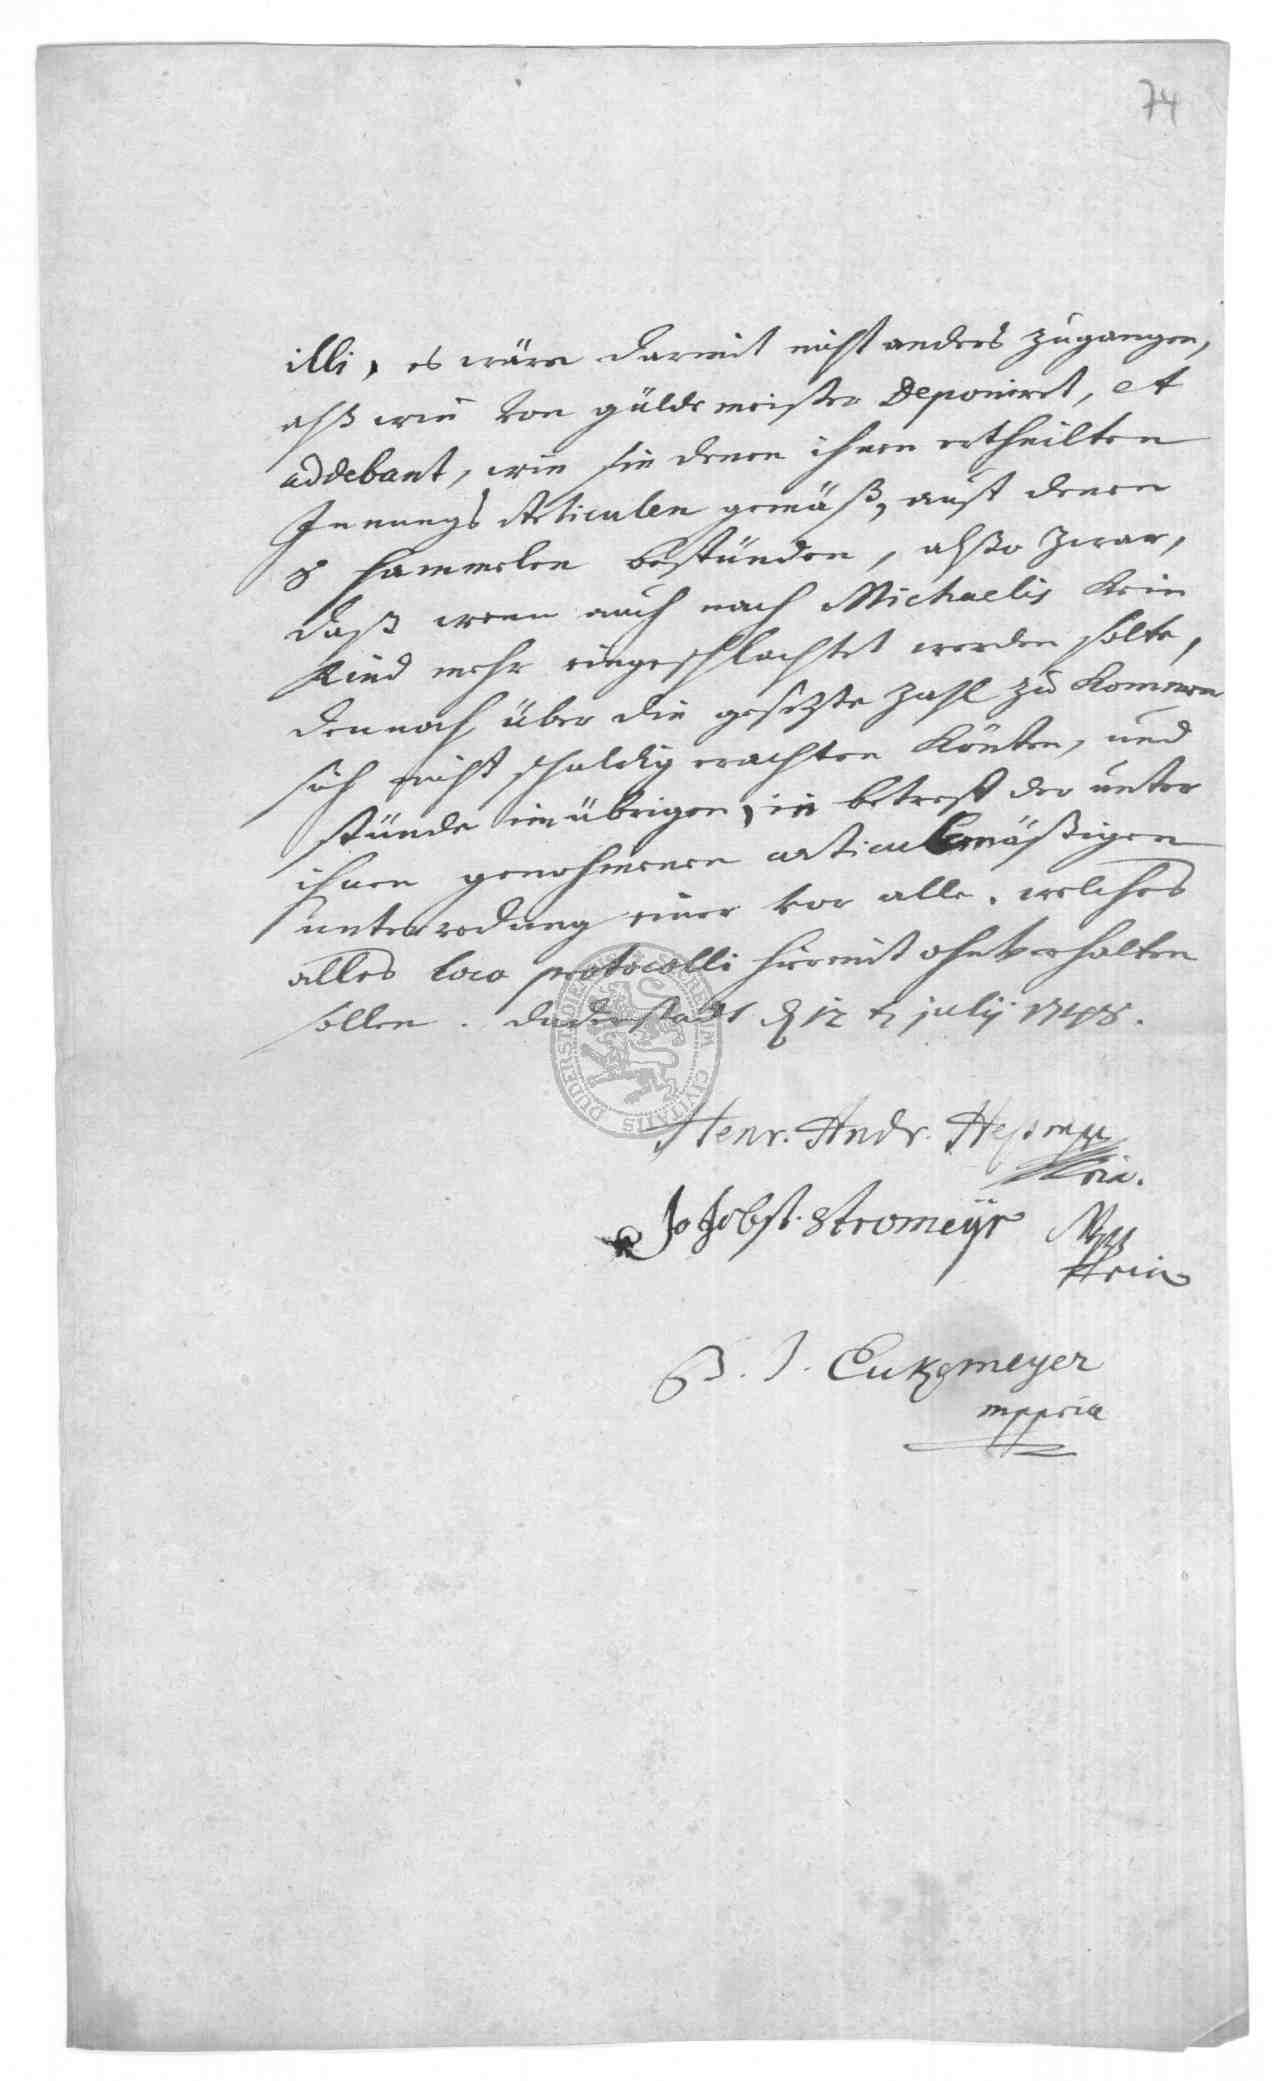 74
illi, es wäre darmit nicht anders zugangen,
alß wie von gülde meister Deponiret, et
addebant, wie sie denen ihnen ertheilten
Innungs Articulen gemäß, auf denen
8 hammelen bestünden, alßo zwar,
daß wenn auch nach Michaelis kein
Rind mehr eingeschlachtet werden solte,
dennoch über die gesetzte zahl zu kommen
sich nicht schuldig erachten könten, und
stünde im übrigen, in betreff der unter
ihnen genohmenen articulsmäßigen
unterredung einer vor alle. welches
alles loco protocolli hiermit ohnverhalten
sollen. Duderstadt d 12 t julij 1748.
Henr. Andr. mpp
ria.
Jo Jobst. Stromeÿr Mpp
pria
B. J. mppria
DUDERSTADIENSIS SECRETUM CIVITATIS